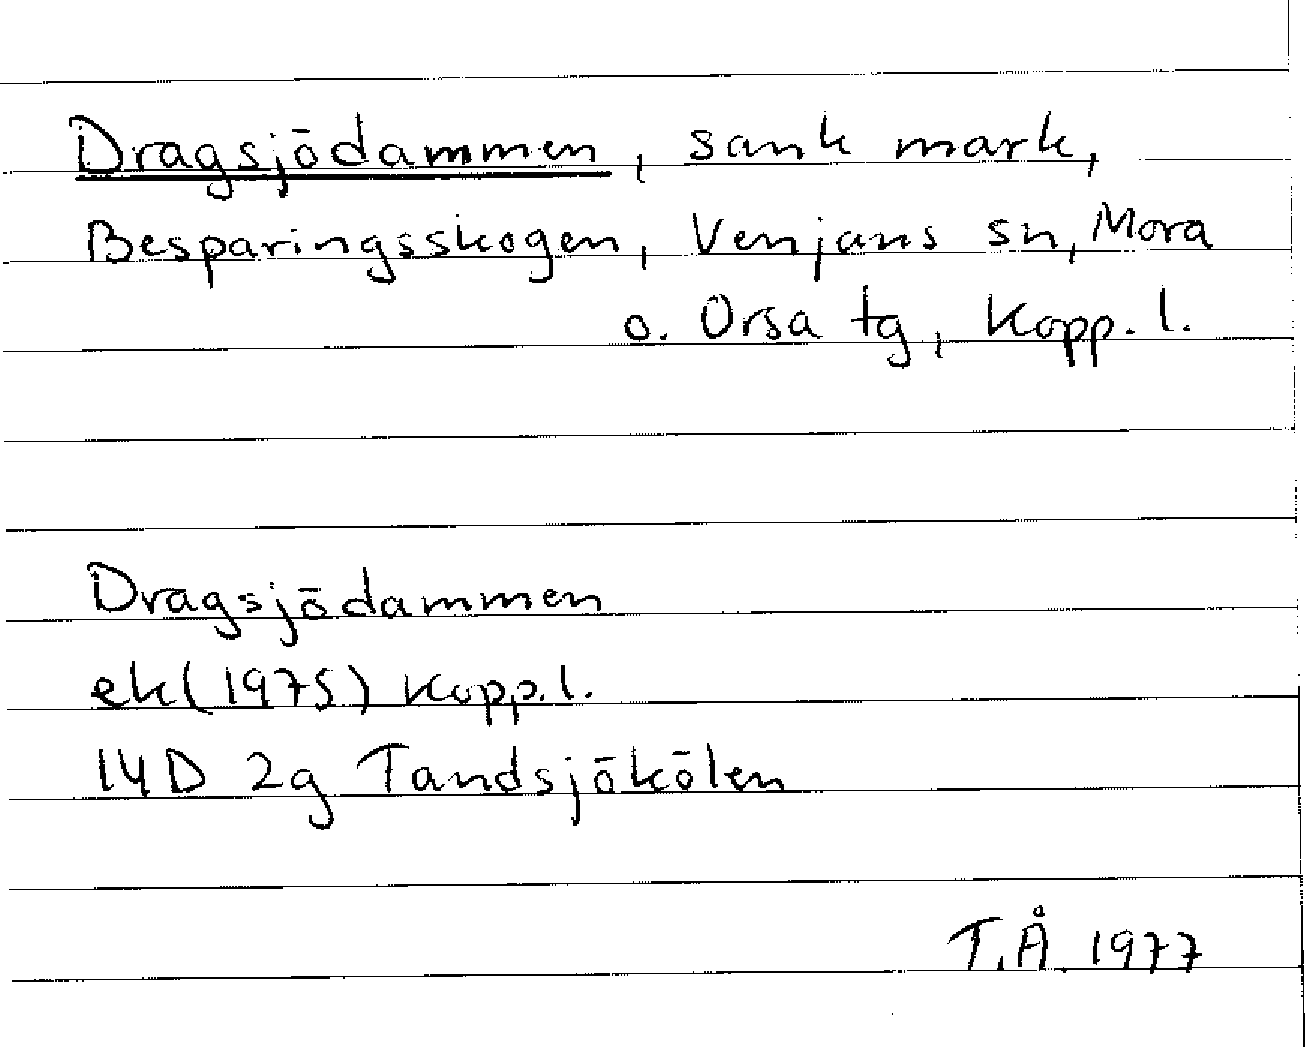 Dragsjödammen, sank mark,
Besparingsskogen, Venjans sn, Mora
o. Orsa tg, Kopp. l.
Dragsjödammen
ek(1975) Kopp.l.
14D 2g Tandsjökölen
T.Å. 1977